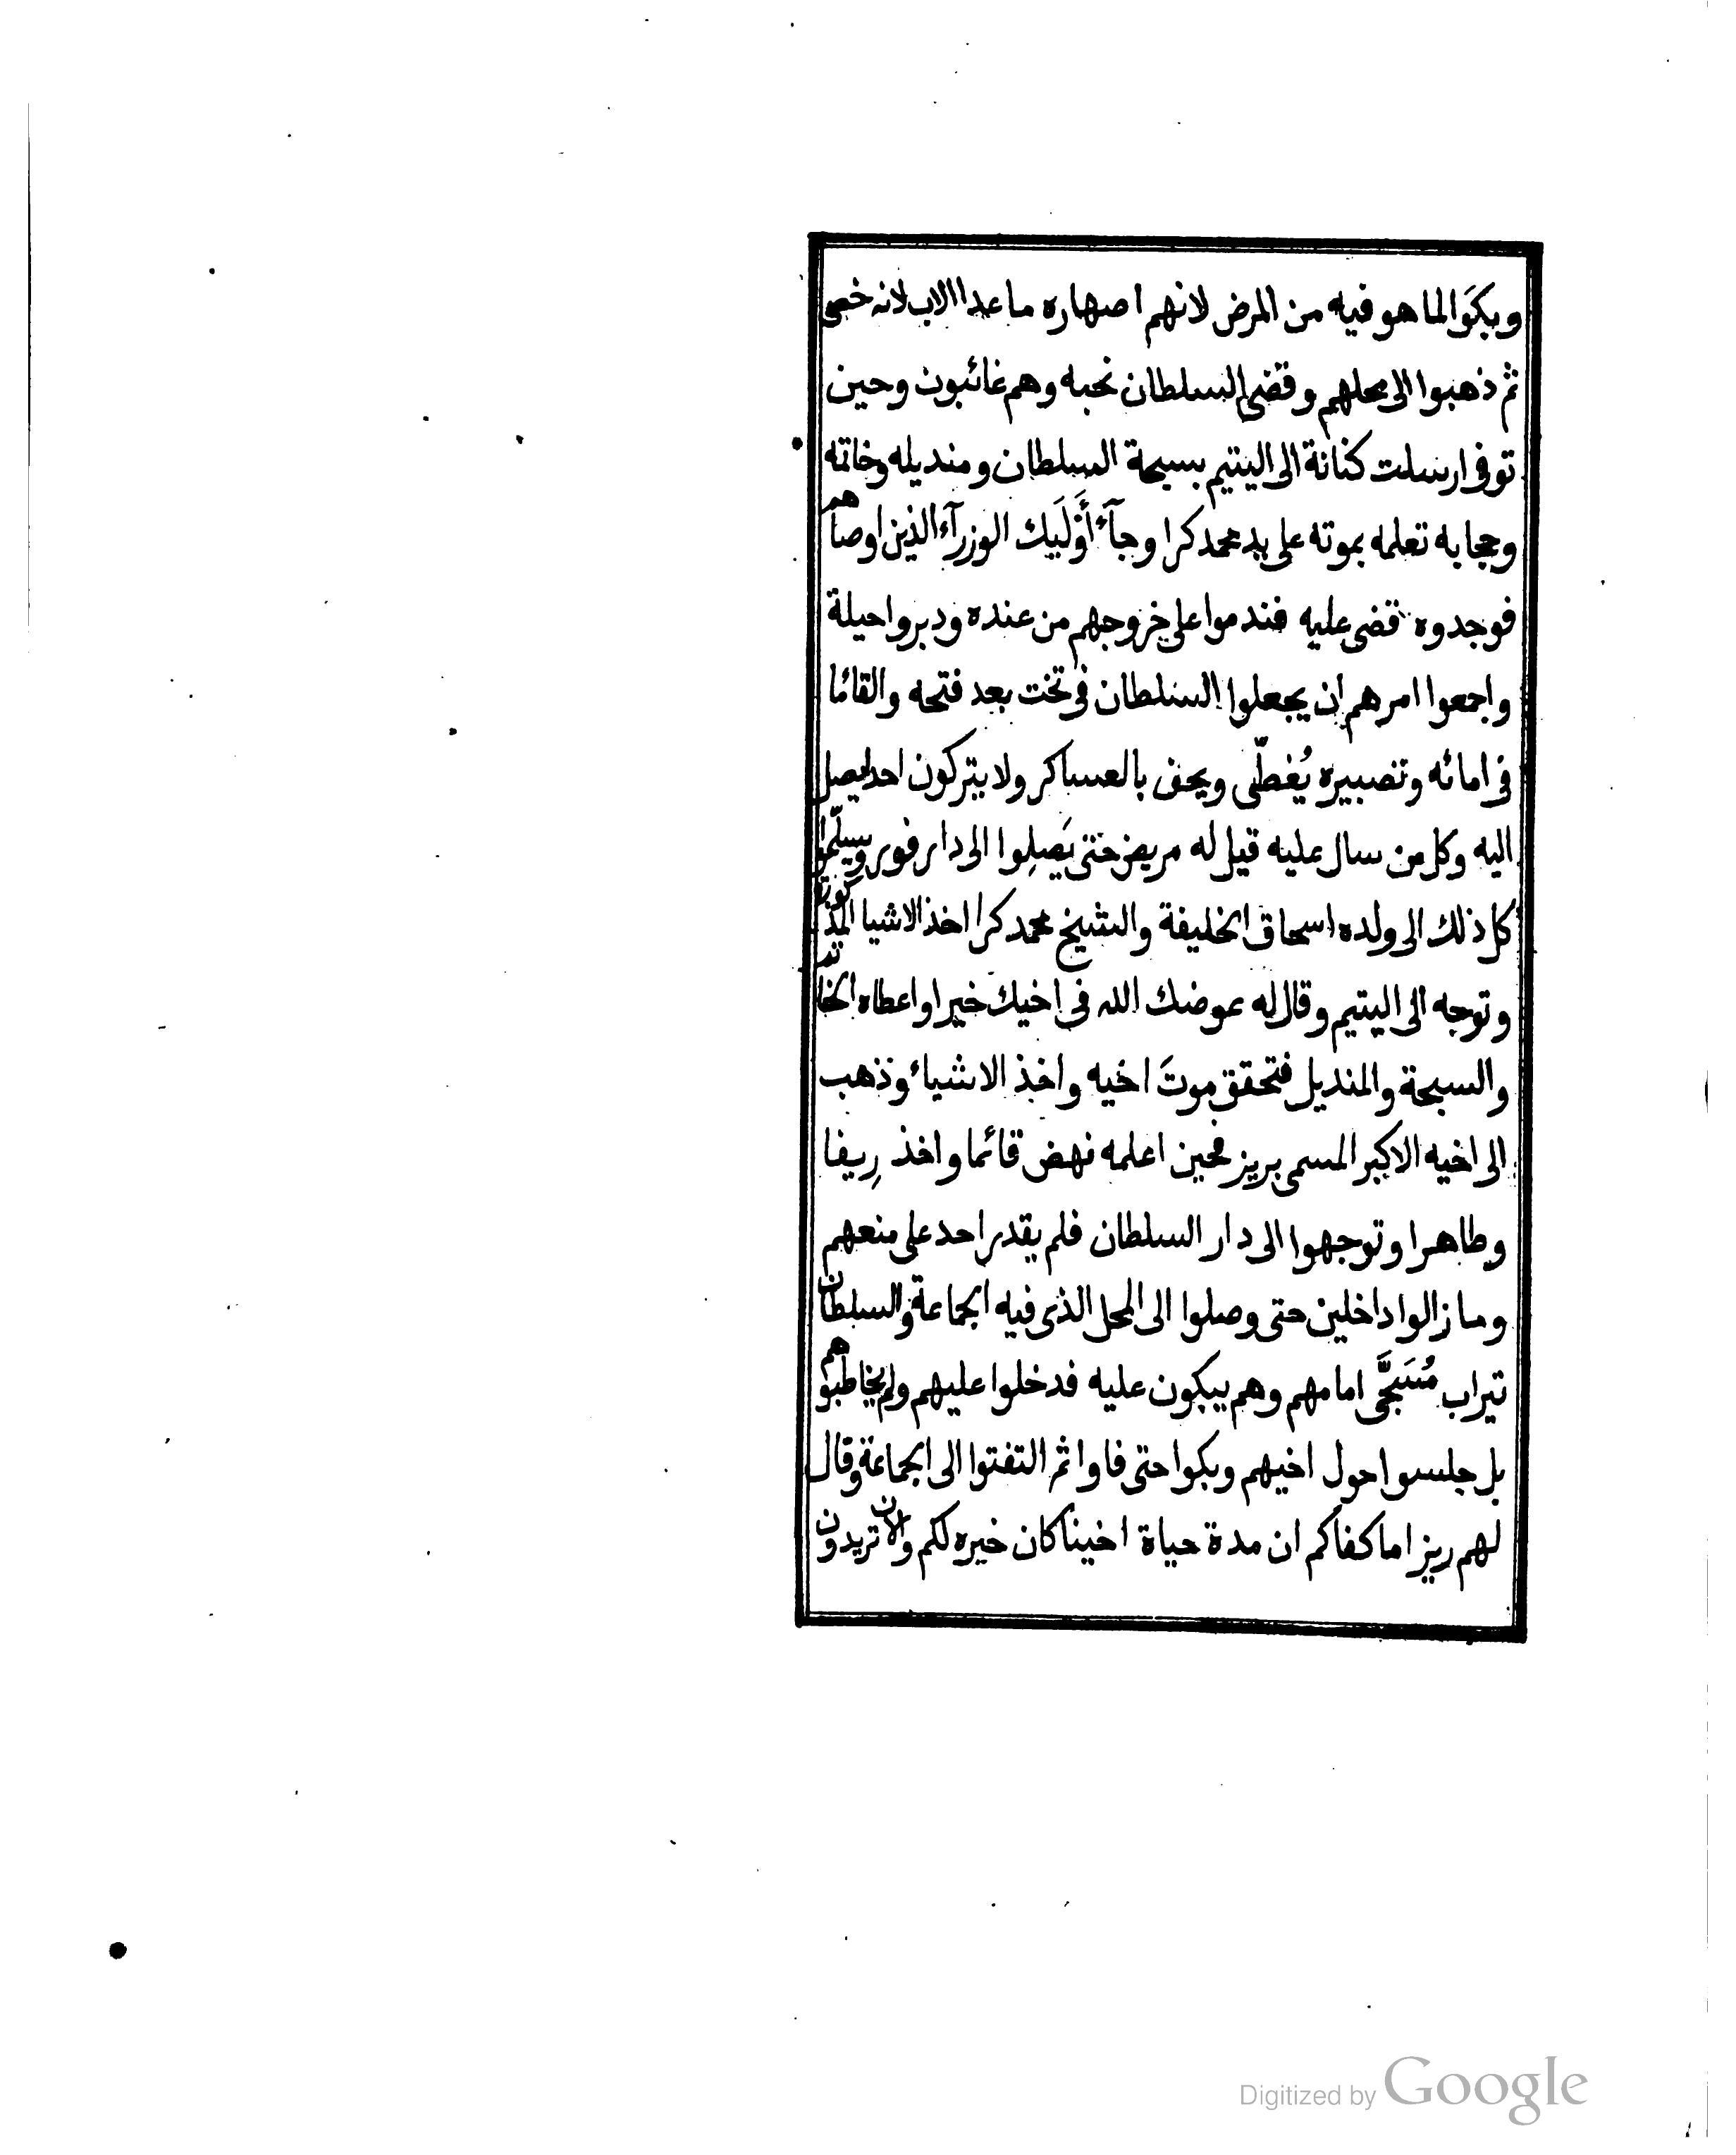 وبكوَا لما هو فيه من المرض لانهم اصهاره ما عدا الاب لانه خصى
ثم ذهبوا الى محلهم وقضى السلطان نحبه وهم غائبون وحين
توفى ارسلت كنانة الى اليتيم بسبحة السلطان ومنديله وخاتمه
وحجابه تعلمه بموته على يد محمد كرا وجآء أُوْلَيِك الوزرآء الذين اوصاهم
فوجدوه قضى عليه فندموا على خروجهم من عنده ودبروا حيلة
واجمعوا امرهم ان يجعلوا السلطان فى تخت بعد فتحه والقائما
فى امائه وتصبيره يُغطّى ويحف بالعساكر ولا يتركون احدا يصل
اليه وكل من سال عليه قيل له مريض حتى يَصِلوا الى دار فور ويسلّموا
كل ذلك الى ولده اسحاق الخليفة والشيخ محمد كرا اخذ الاشيا المذكورة
وتوجه الى اليتيم وقال له عوضك الله فى اخيك خيرا واعطاه الخاتم
والسبحة والمنديل فتحقق موتَ اخيه واخذ الاشياء وذهب
الى اخيه الاكبر المسمى بريز فحين اعلمه نهض قائما واخذ رِيفا
وطاهرا وتوجهوا الى دار السلطان فلم يقدر احد على منعهم
وما زالوا داخلين حتى وصلوا الى المحل الذى فيه الجماعة والسلطان
تيراب مُسَجَّى امامهم وهم يبكون عليه فدخلوا عليهم ولم يخاطبوهم
بل جلسوا حول اخيهم وبكوا حتى فاوا ثم التفتوا الى الجماعة وقال
لهم ريز اما كفاكم ان مدة حياة اخينا كان خيره لكم والان تريدون
Digitized by Google